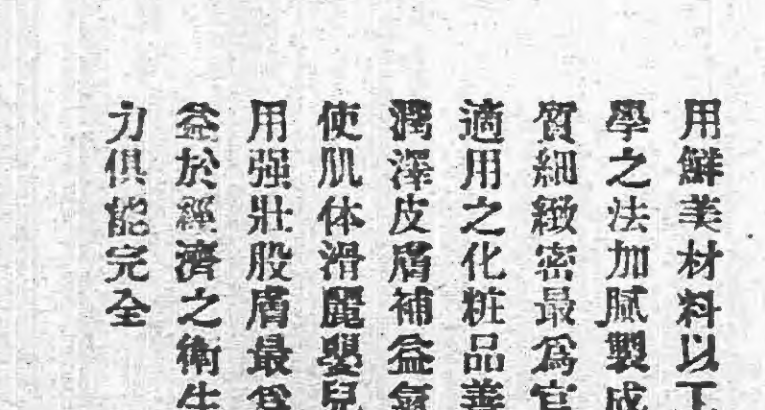 用鮮美材料以下
學之法加膩製成
質細緻密最爲官
適用之化粧品善
潤澤皮膚補益氣
使肌体滑麗嬰兒
用强壯股膚最爲
益於經濟之衛生
力俱能完全